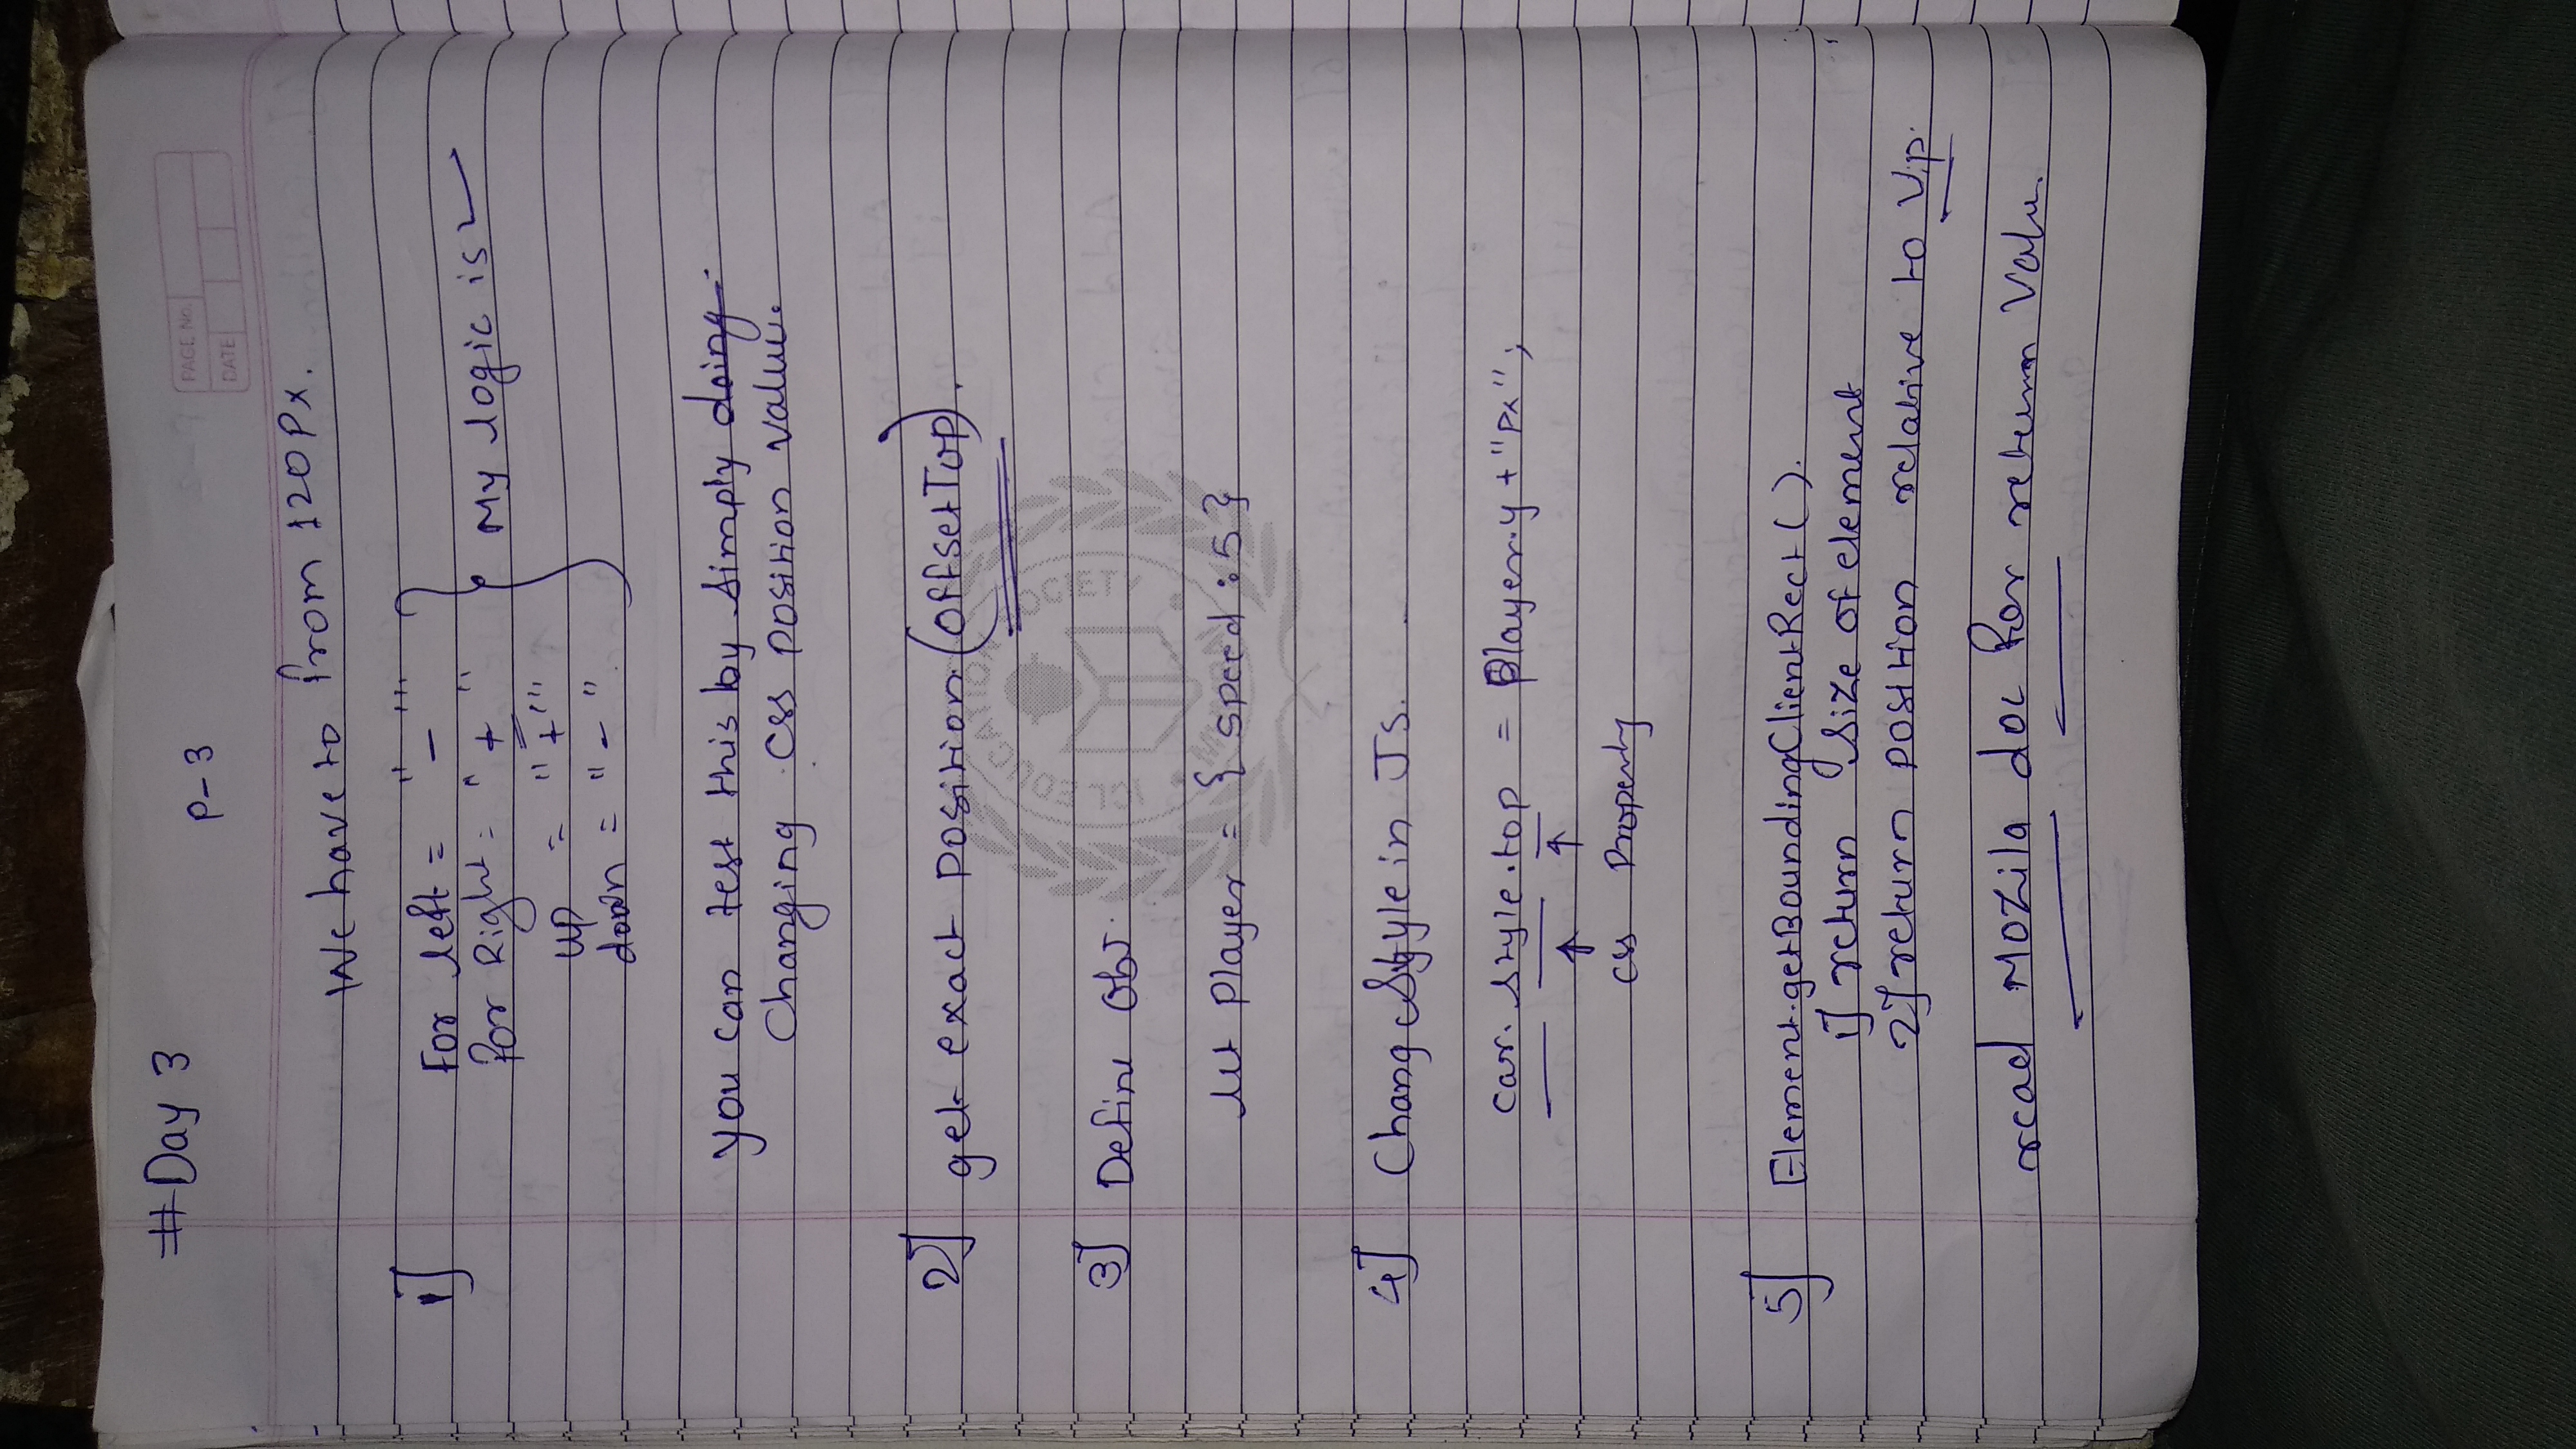 PAGE NO.
DATE
#Day 3 P-3
We have to from 120Px.
1] For left = " - "
For Right = " + " My logic is
UP = " + "
down = " - "
you can test this by simply doing
Changing css position value.
2] get exact position (offsetTop).
3] Define obj.
let player = { speed : 5 }
4] Chang style in Js.
car. style.top = Player.y + "px";
css Property
5] Element.getBoundingClientRect().
1] return size of element
2] return position relative to V.P.
read Mozila doc for return value.